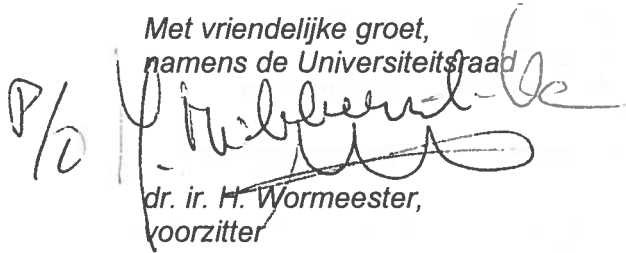 Met vriendelijke groet,
namens de Universiteitsraad
P/O
dr. ir. H. Wormeester,
voorzitter